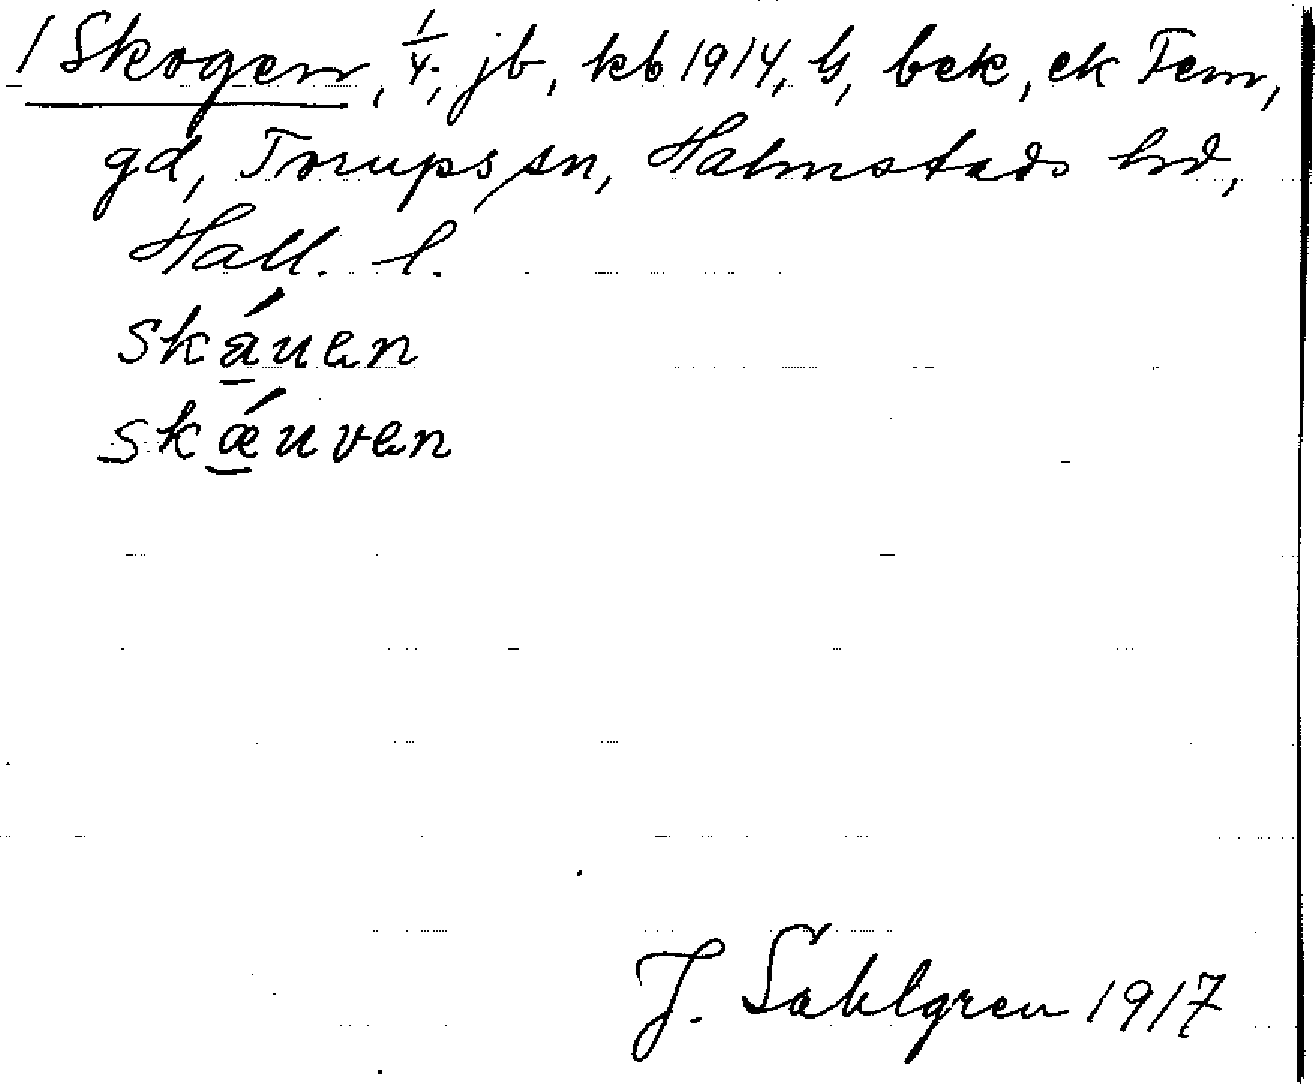 1 Skogen, 1/4, jb, kb 1914, G, bek, ek Fem,
gd, Torups sn, Halmstads hd,
Hall. l.
skáuen
skǽuven
J. Sahlgren 1917